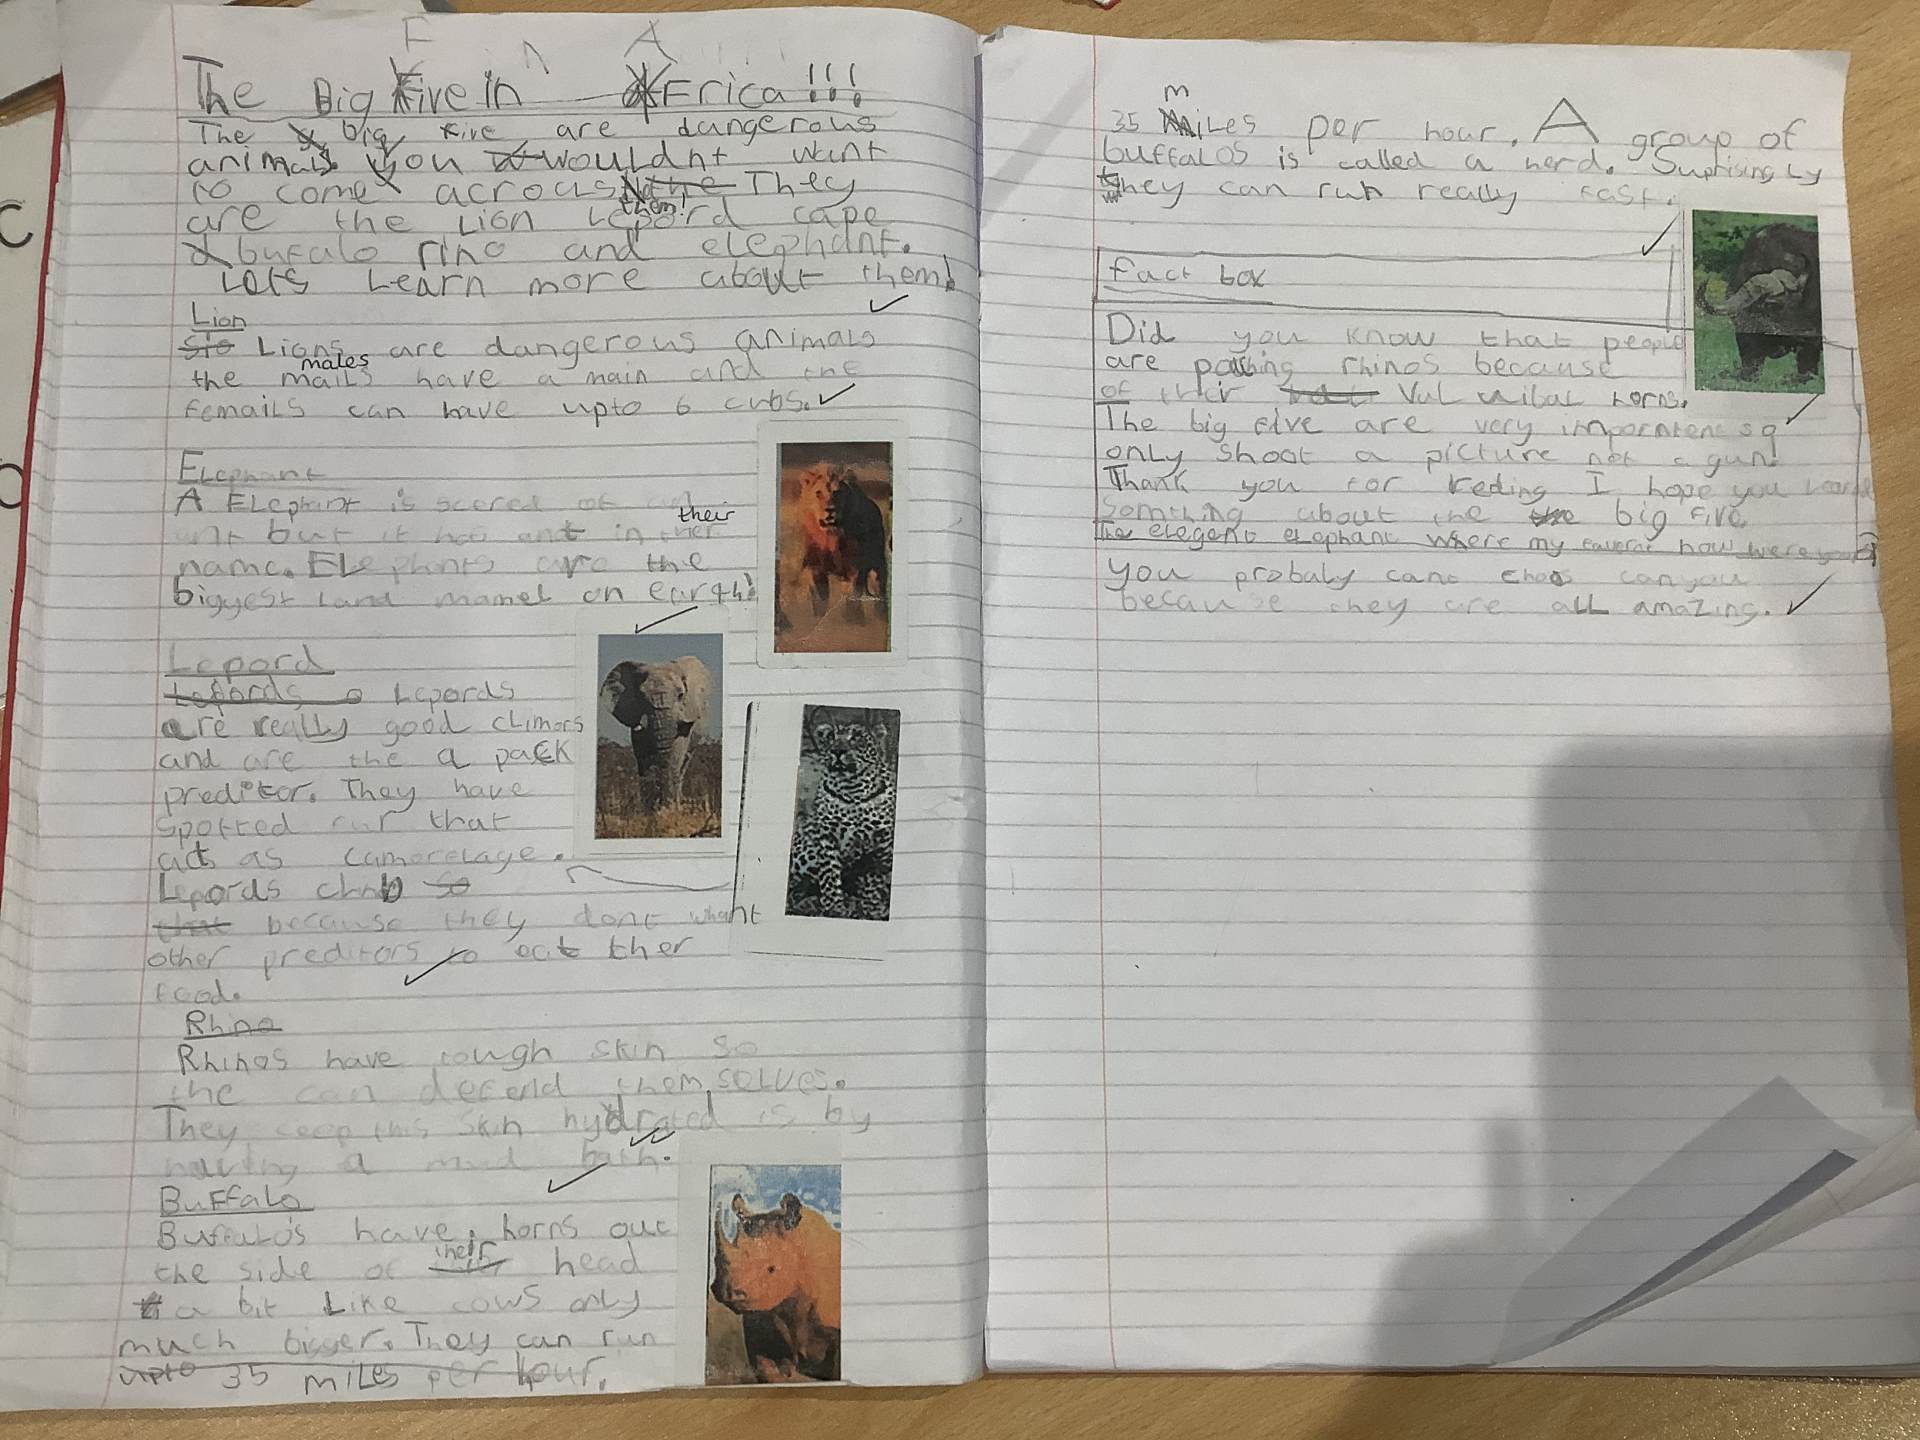 The Big Five in Africa!!!
The big five are dangerous
animals. You wouldnt want
to come acrous them! They
are the Lion Lepord cape
bufalo rino and elephant.
Lets Learn more about them!
Lion
Lions are dangerous animals
the males have a main and the
femails can have upto 6 cubs.
Elephant
A Elephint is scered of an
ant but it has ant in their
name. Elephints are the
biggest Land mamel on earth!
Lepord
Lepords
are really good climors
and are the a pack
preditor. They have
spotted fur that
acts as camofelage.
Lepords climb
because they dont whant
other preditors to eat ther
food.
Rhino
Rhinos have tough skin so
the can defend themselves.
They keep this skin hydrated is by
having a mud bath.
Buffalo
Buffulo's have horns out
the side of their head
a bit Like cows only
much bigger. They can run
upto 35 miles per hour.
35 miles per hour. A group of
buffalos is called a herd. Suprisingly
they can run really fast.
fact box
Did you know that people
are poching rhinos because
of their horns.
The big five are very so
only shoot a picture not a gun!
Thank you for reding I hope you
Somthing about the big five.
The elegent elephant where my how
you probaly cant choos can you
because they are all amazing.